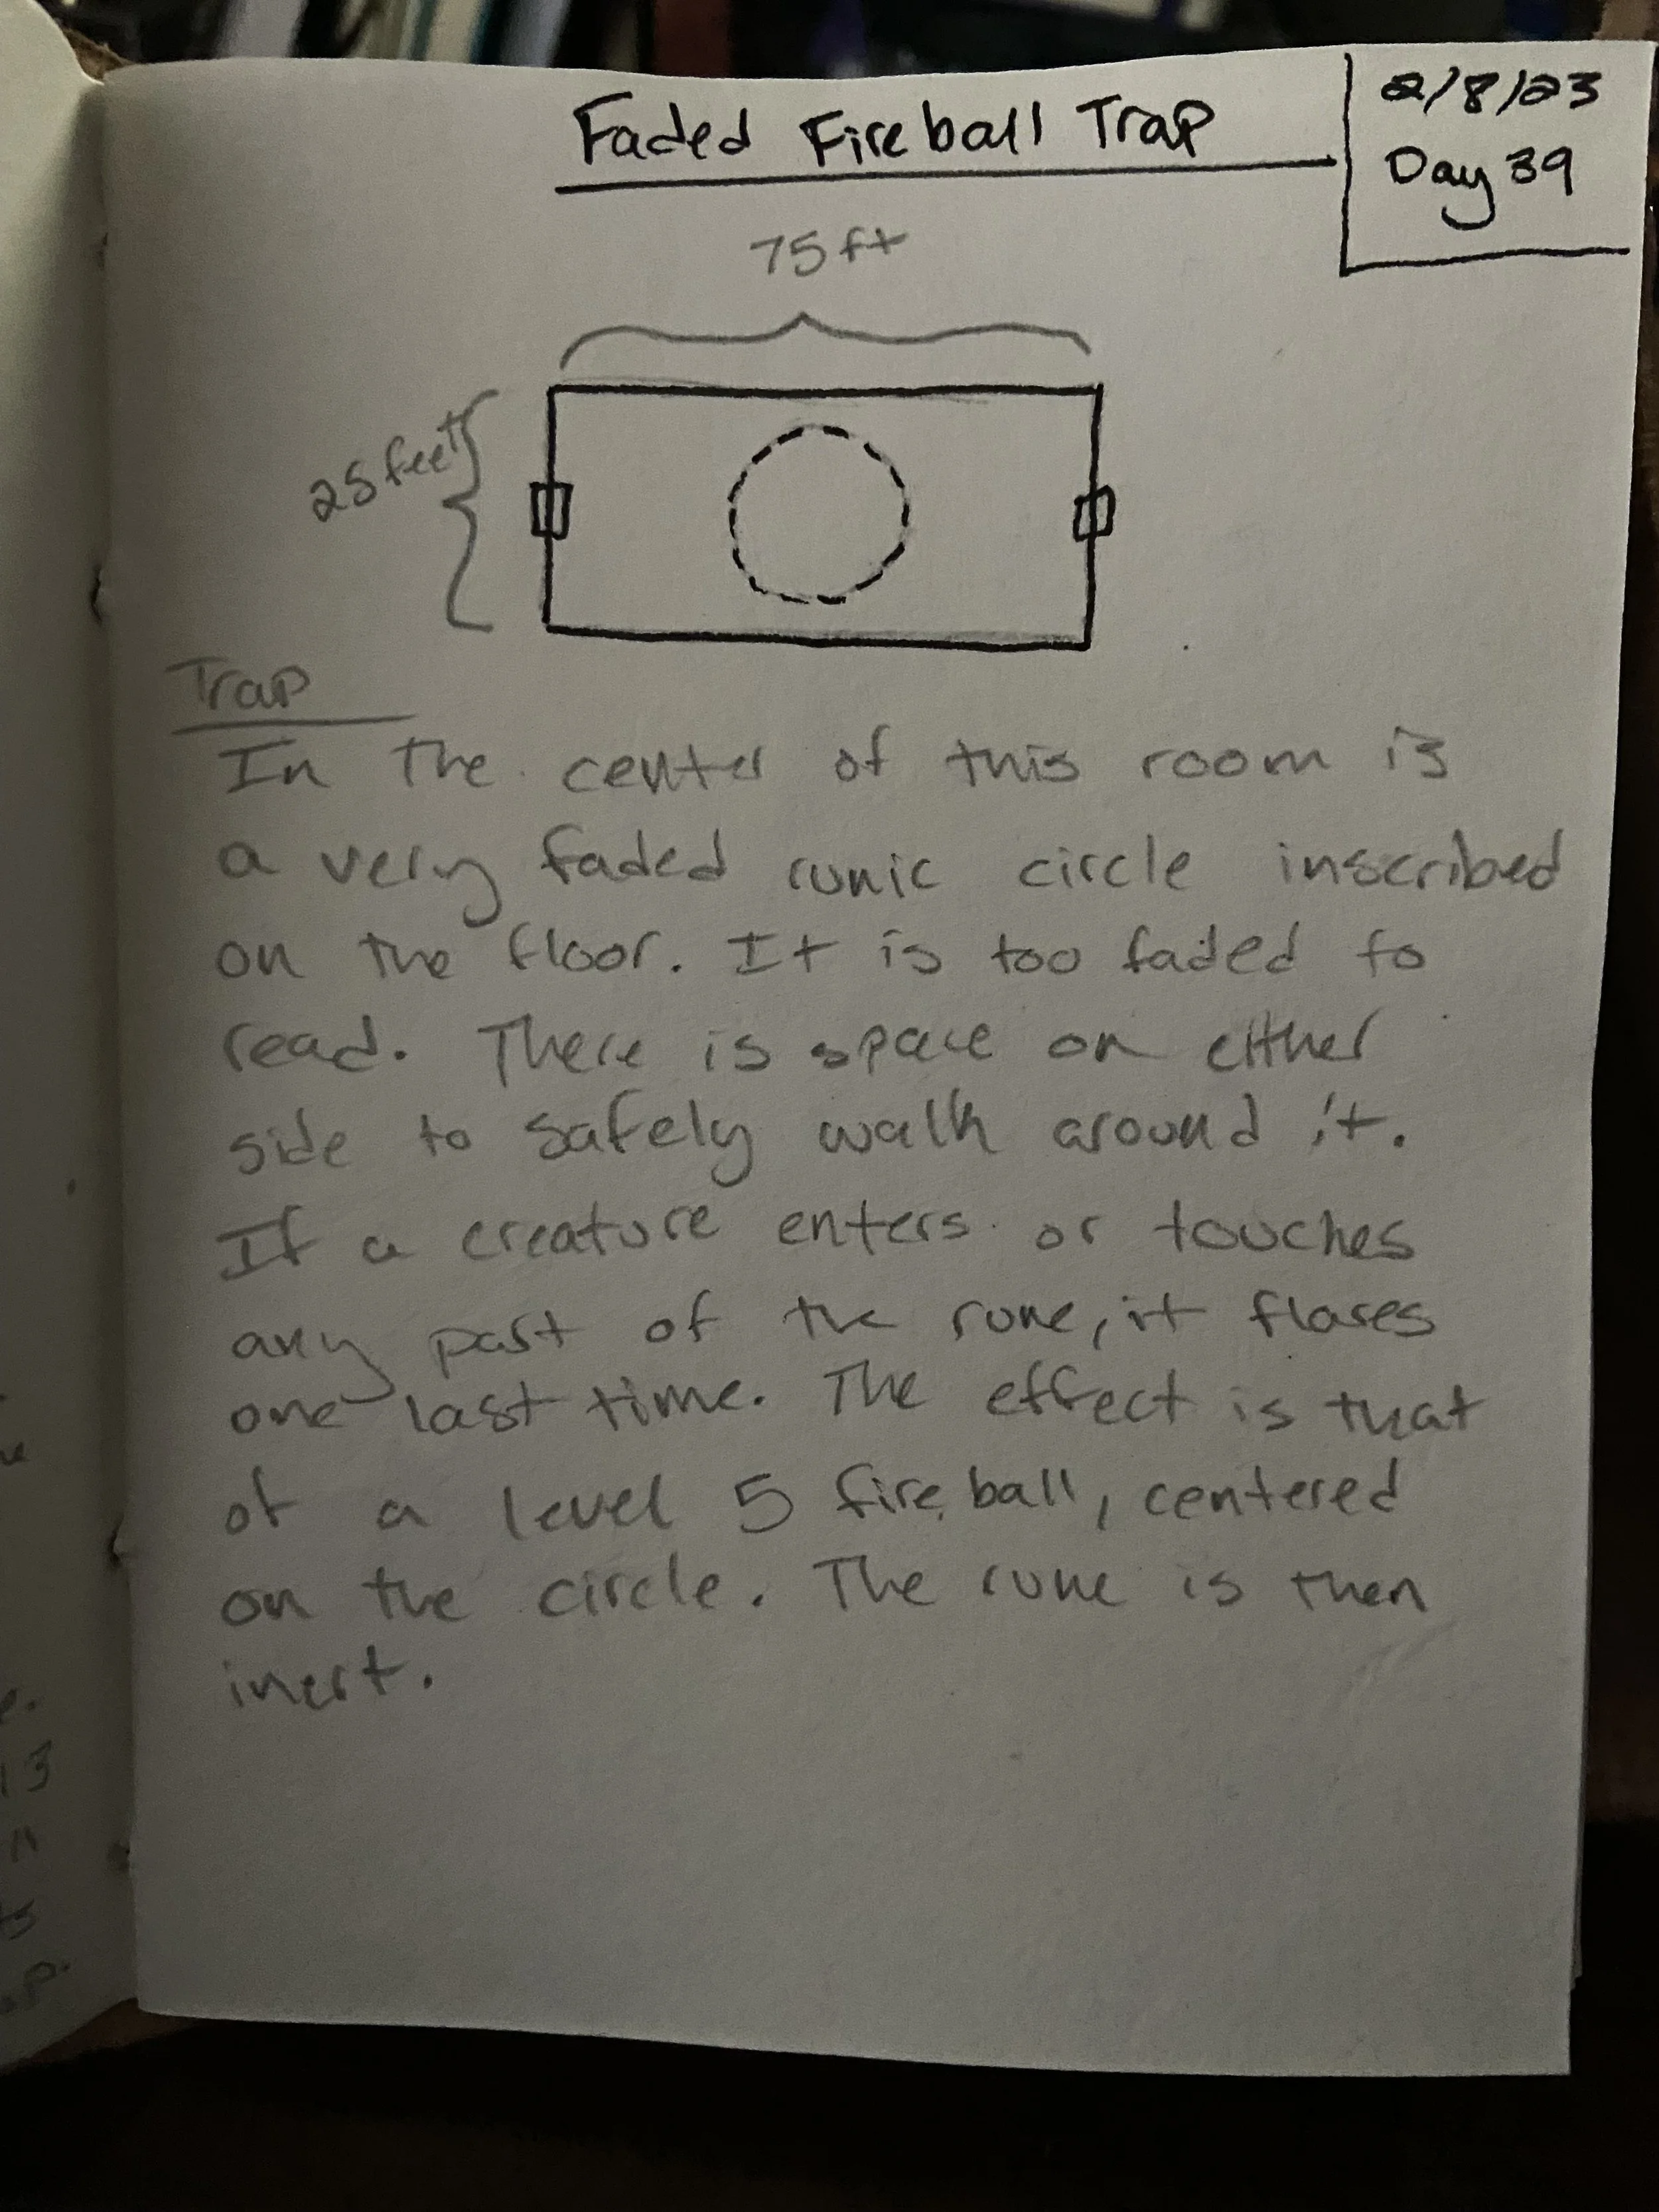 Faded Fireball Trap
2/8/23
Day 39
75 ft
25 feet
Trap
In the center of this room is
a very faded runic circle inscribed
on the floor. It is too faded to
read. There is space on either
side to safely walk around it.
If a creature enters or touches
any part of the rune, it flares
one last time. The effect is that
of a level 5 fireball, centered
on the circle. The rune is then
inert.